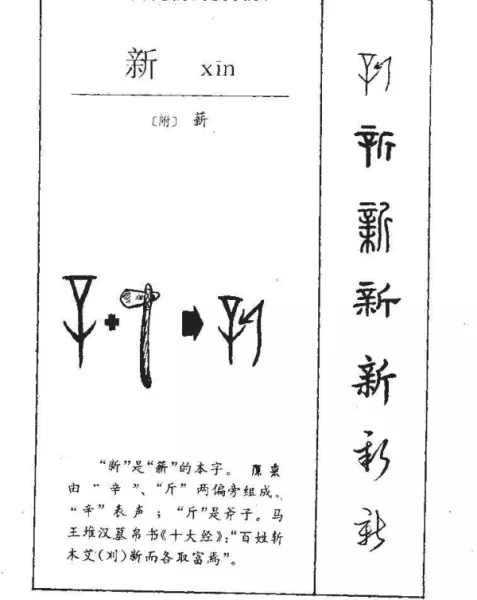 新 xīn
〔附〕 薪
"新"是"薪"的本字。
由 "辛"、"斤" 两偏旁组成。
"辛" 表声 ; "斤"是斧子。马
王堆汉墓帛书《十大经》:"百姓斩
木艾(刈)新而各取富焉"。
新
新
新
新
新